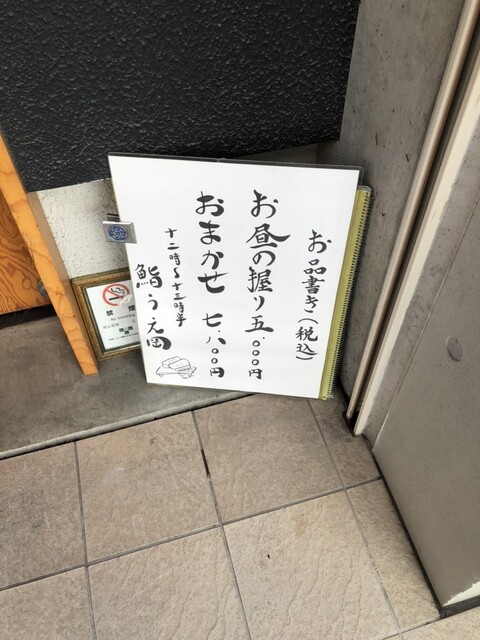 お品書き(税込)
お昼の握り五.〇〇〇円
おまかせ七.八〇〇円
十二時〜十三時半
鮨うえ田
禁煙
No Smoking